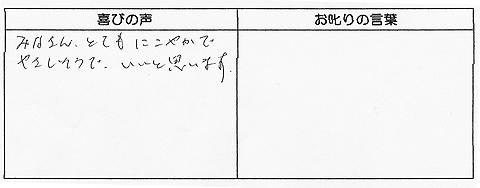 喜びの声
お叱りの言葉
みなさん、とても にこやかで
やさしそうで、いいと思います。